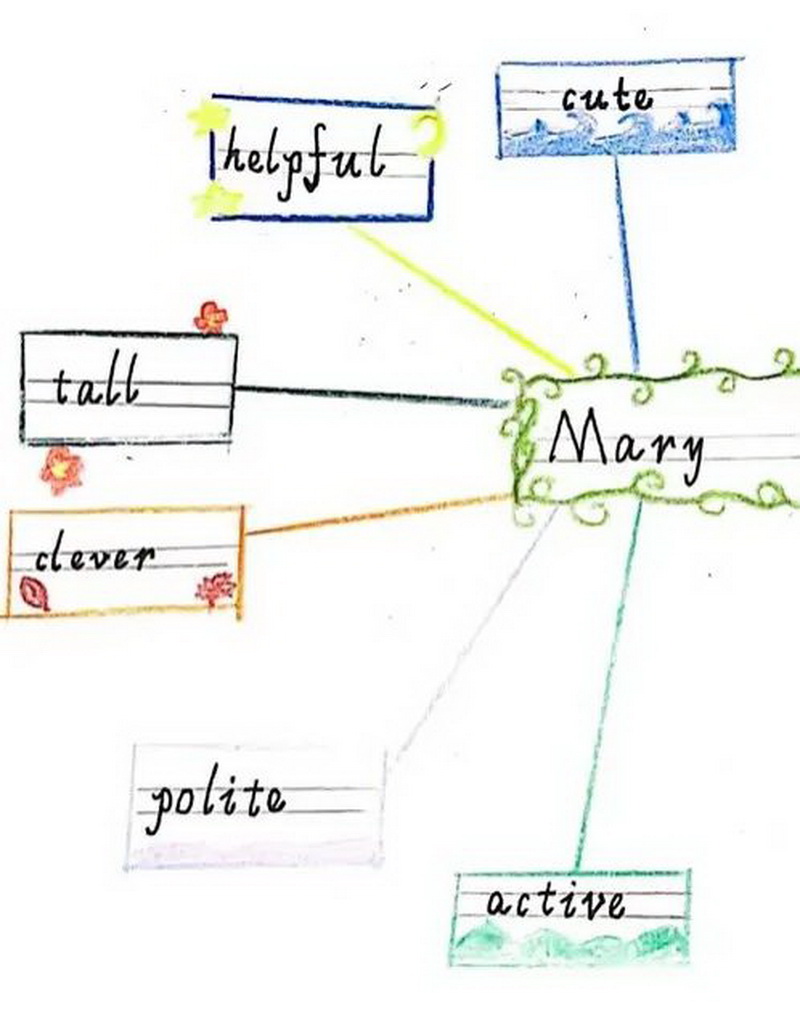 cute
helpful
tall
Mary
clever
polite
active